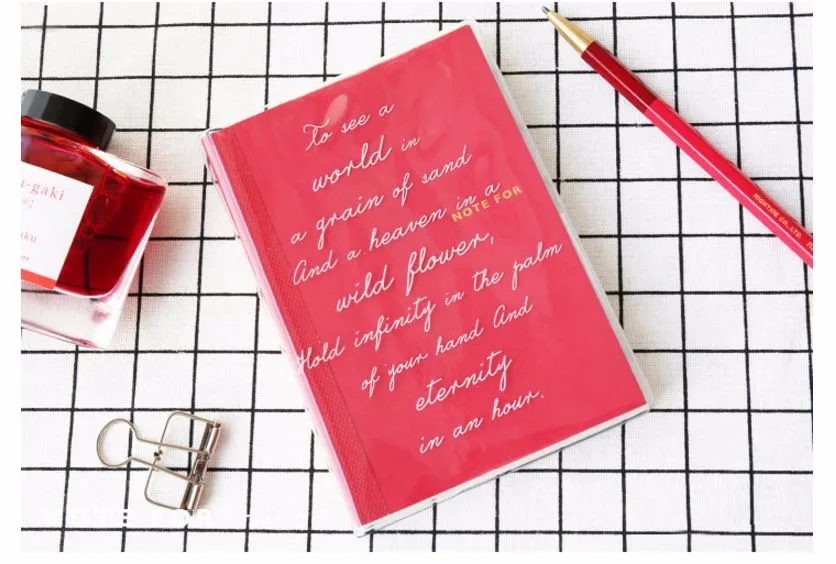 To see a
world in
a grain of sand
And a heaven in a
NOTE FOR
wild flower,
Hold infinity in the palm
of your hand And
eternity
in an hour.
HIGHTIDE CO., LTD.
u-gaki